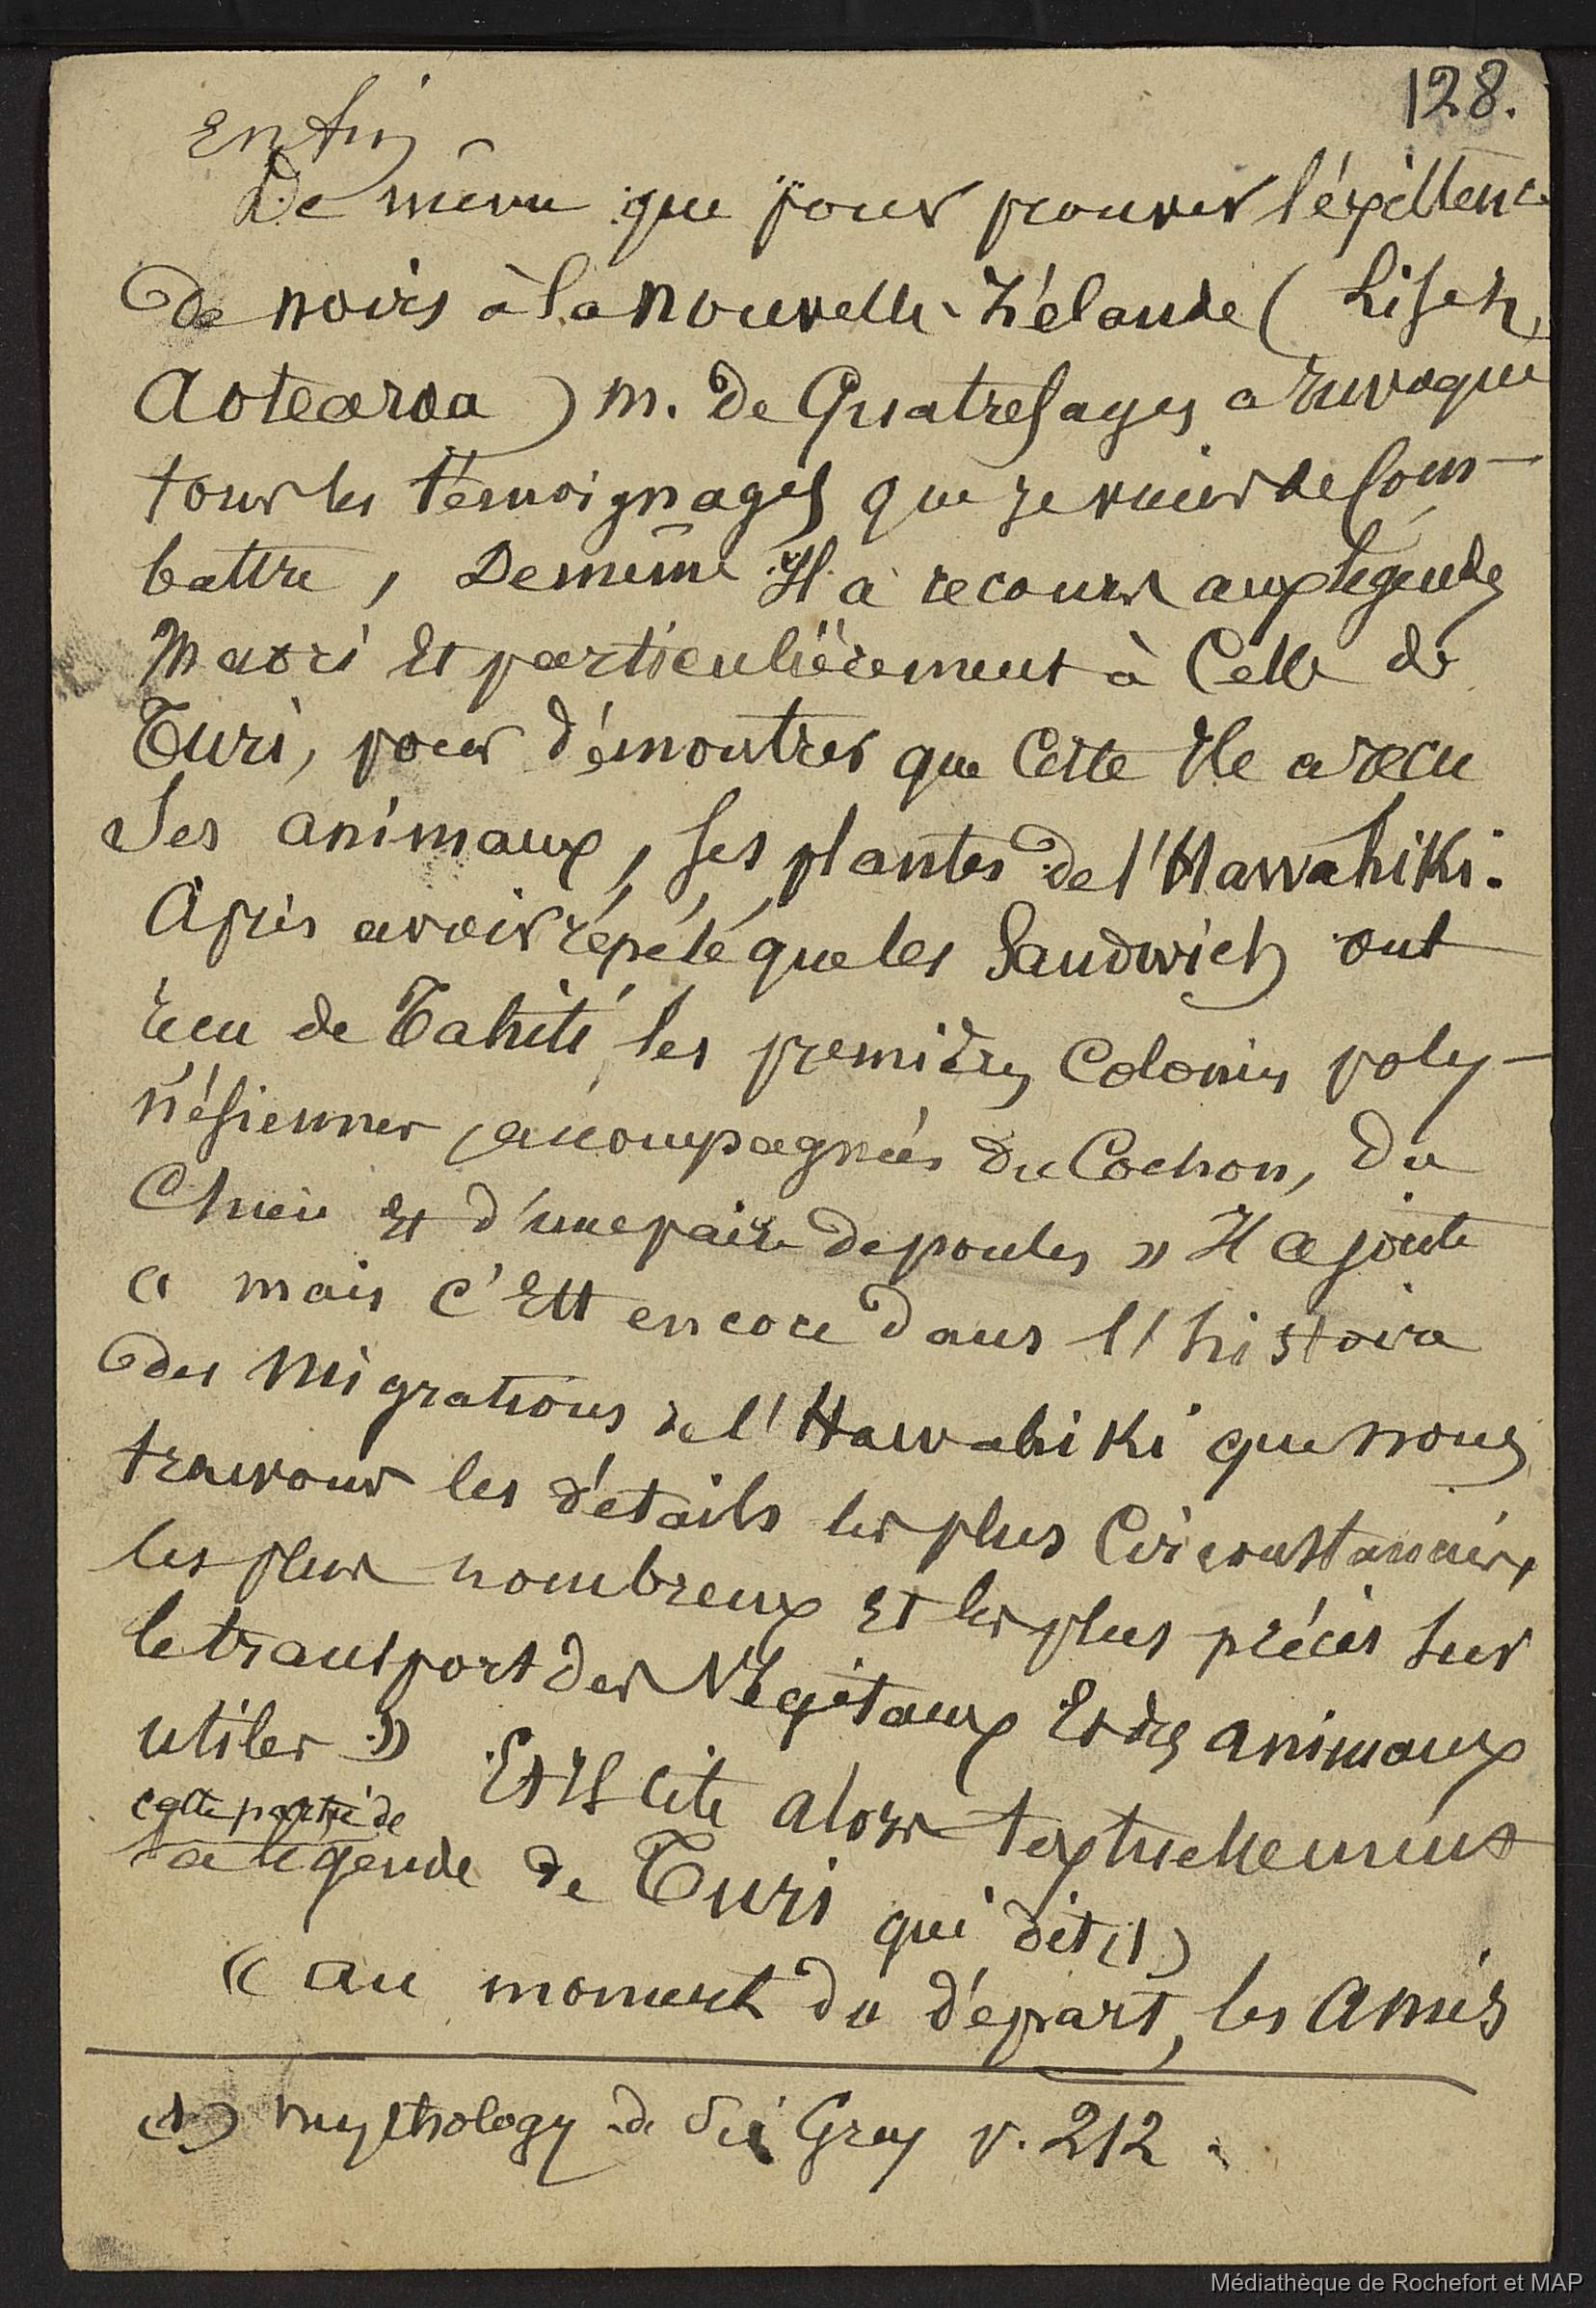 128.
Enfin
De même que pour prouver l'existence
de noirs à la Nouvelle-Zélande ( lisez
Aotearoa ) M. de Quatrefages a invoqué
tous les témoignages que je viens de com-
battre, de même il a recours aux légendes
Maori et particulièrement à celle de
Turi, pour démontrer que cette île a reçu
ses animaux, ses plantes de l'Hawahiki.
Après avoir répété que les Sandwich ont
reçu de Tahiti les premières colonies poly-
nésiennes accompagnées du cochon, du
chien et d'une paire de poules » Il ajoute
« mais c'est encore dans l'histoire
des migrations de l'Hawahiki que nous
trouvons les détails les plus circonstanciés,
les plus nombreux et les plus précis sur
le transport des végétaux et des animaux
utiles » Et il cite alors textuellement
cette partie de
la légende de Turi qui dit (1)
« au moment du départ, les amis
(1) Mythology de Sir Grey p. 212.
Médiathèque de Rochefort et MAP